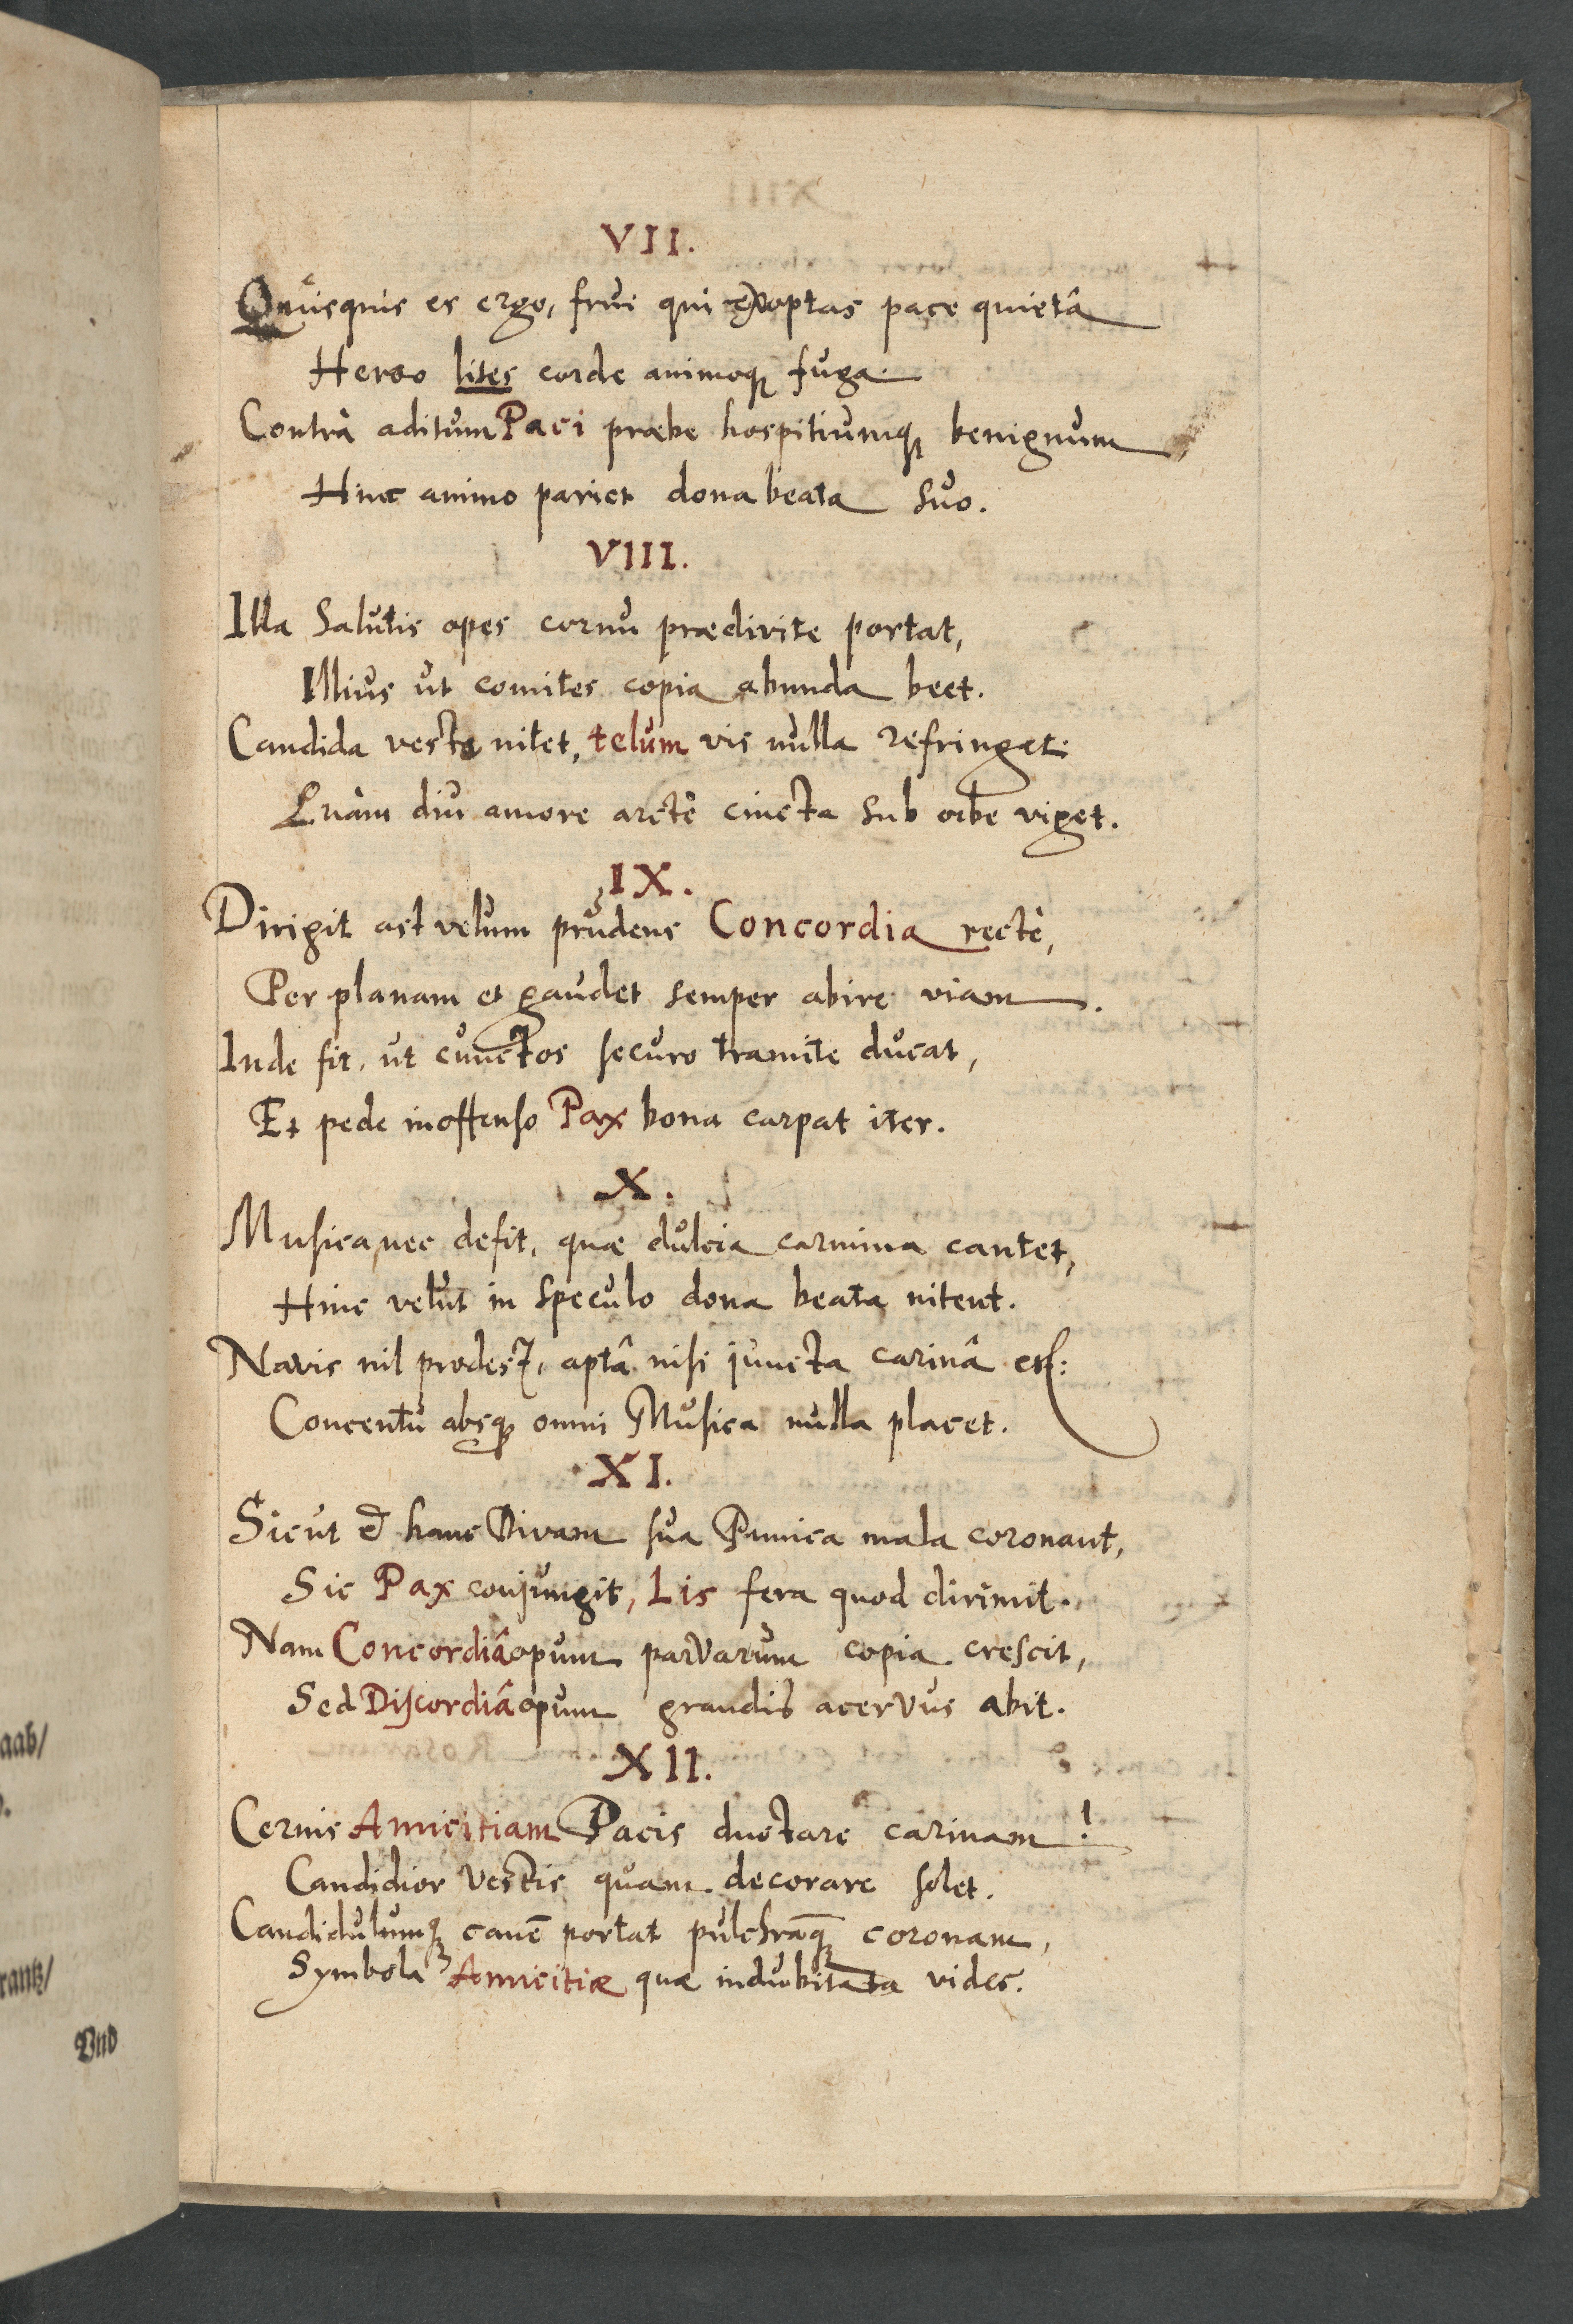 aab/
rantz/
Vnd
VII.
Quisquis es ergo, frui qui exoptas pace quietâ
lites corde animoq; fuga.
Contrà aditum Paci præbe hospitiumq; benignum
Hinc animo pariet dona beata suo.
VIII.
Illa Salutis opes cornu prædivite portat,
Illius ut comites copia abunda beet.
Candida veste nitet, telum vis nulla refringet:
diu amore arctè cincta sub orbe viget.
IX.
Dirigit ast velum prudens Concordia rectè,
Per planam et gaudet semper abire viam.
Inde fit, ut cunctos securo tramite ducat,
Et pede inoffenso Pax bona carpat iter.
X.
Musica nec defit, quæ dulcia carmina cantet,
Hinc velut in speculo dona beata nitent.
Navis nil prodest, aptâ nisi juncta carinâ est:
Concentu absq; omni Musica nulla placet.
XI.
Sicut & hanc Divam sua Punica mala coronant,
Sic Pax conjungit, Lis fera quod dirimit.
Nam Concordiâ opum parvarum copia crescit,
Sed Discordiâ opum grandis acervus abit.
XII.
Cernis Amicitiam Pacis ductare carinam!
Candidior vestis quam decorare solet.
Candidulumq; canē portat pulchrāq; coronam,
Symbola Amicitiæ quæ indubitata vides.